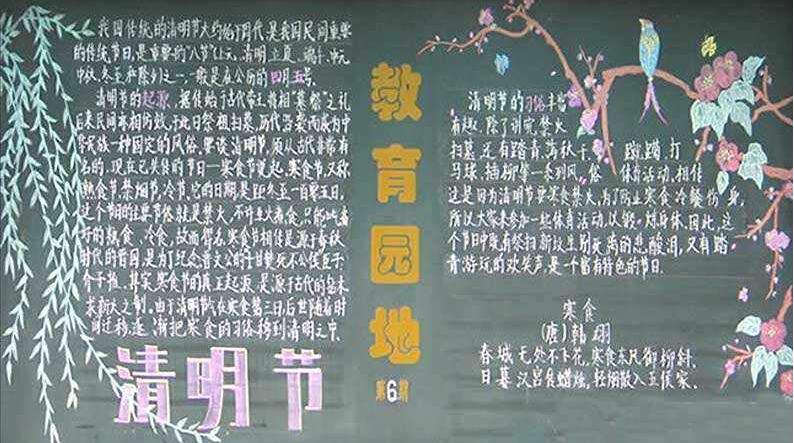 我国传统的清明节大约始于周代,是我国民间重要
的传统节日,是重要的“八节”(上元、清明、立夏、端午、中元、
中秋、冬至和除夕)之一,一般是在公历的四月五号。
清明节的起源,据传始于古代帝王将相“墓祭”之礼,
后来民间亦相仿效,于此日祭祖扫墓,历代沿袭而成为中
华民族一种固定的风俗。要谈清明节,须从古代非常有
名的,现在已失传的节日—寒食节说起。寒食节,又称
熟食节、禁烟节,冷节。它的日期是距冬至一百零五日,
这个节日的主要节俗就是禁火,不许生火煮食,只能吃备
好的熟食、冷食,故而得名。寒食节相传是源于春秋
时代的晋国,是为了纪念晋文公的
介子推。其实,寒食节的真正起源,是源于古代的钻木
求新火之制。由于清明节气在寒食第三日,后世随着时
间迁移逐渐把寒食的习俗移到清明之中。
清明节
教育园地
第6期
清明节的习俗丰富
有趣,除了讲究禁火
扫墓,还有踏青、荡秋千、蹴鞠、打
马球、插柳等一系列风俗体育活动。相传
这是因为清明节要寒食禁火,为了防止寒食冷餐伤身,
所以大家来参加一些体育活动,以锻炼身体。因此,这
个节日中既有祭扫新坟生别死离的悲酸泪,又有踏
青游玩的欢笑声,是一个富有特色的节日。
寒食
(唐)韩翃
春城无处不飞花,寒食东风御柳斜。
日暮汉宫传蜡烛,轻烟散入五侯家。